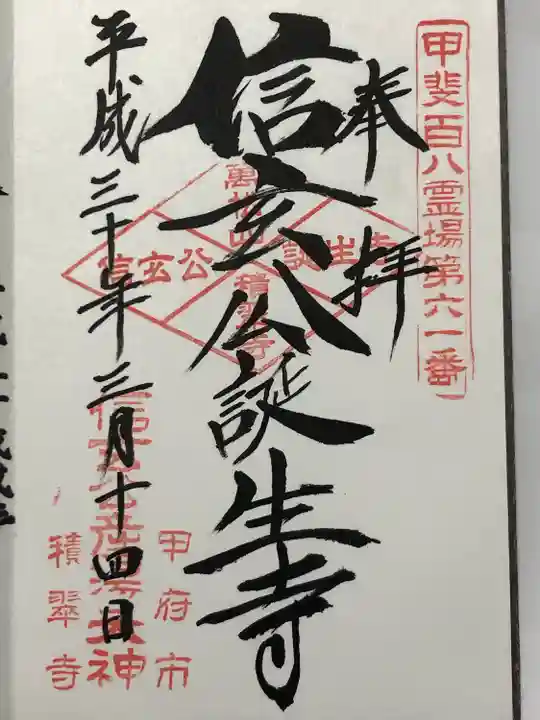 甲斐百八霊場第六一番
奉拝
信玄公誕生寺
萬松山
積翠寺
信玄公
誕生寺
平成三十年三月十四日
甲府市
信玄公産湯天神
積翠寺